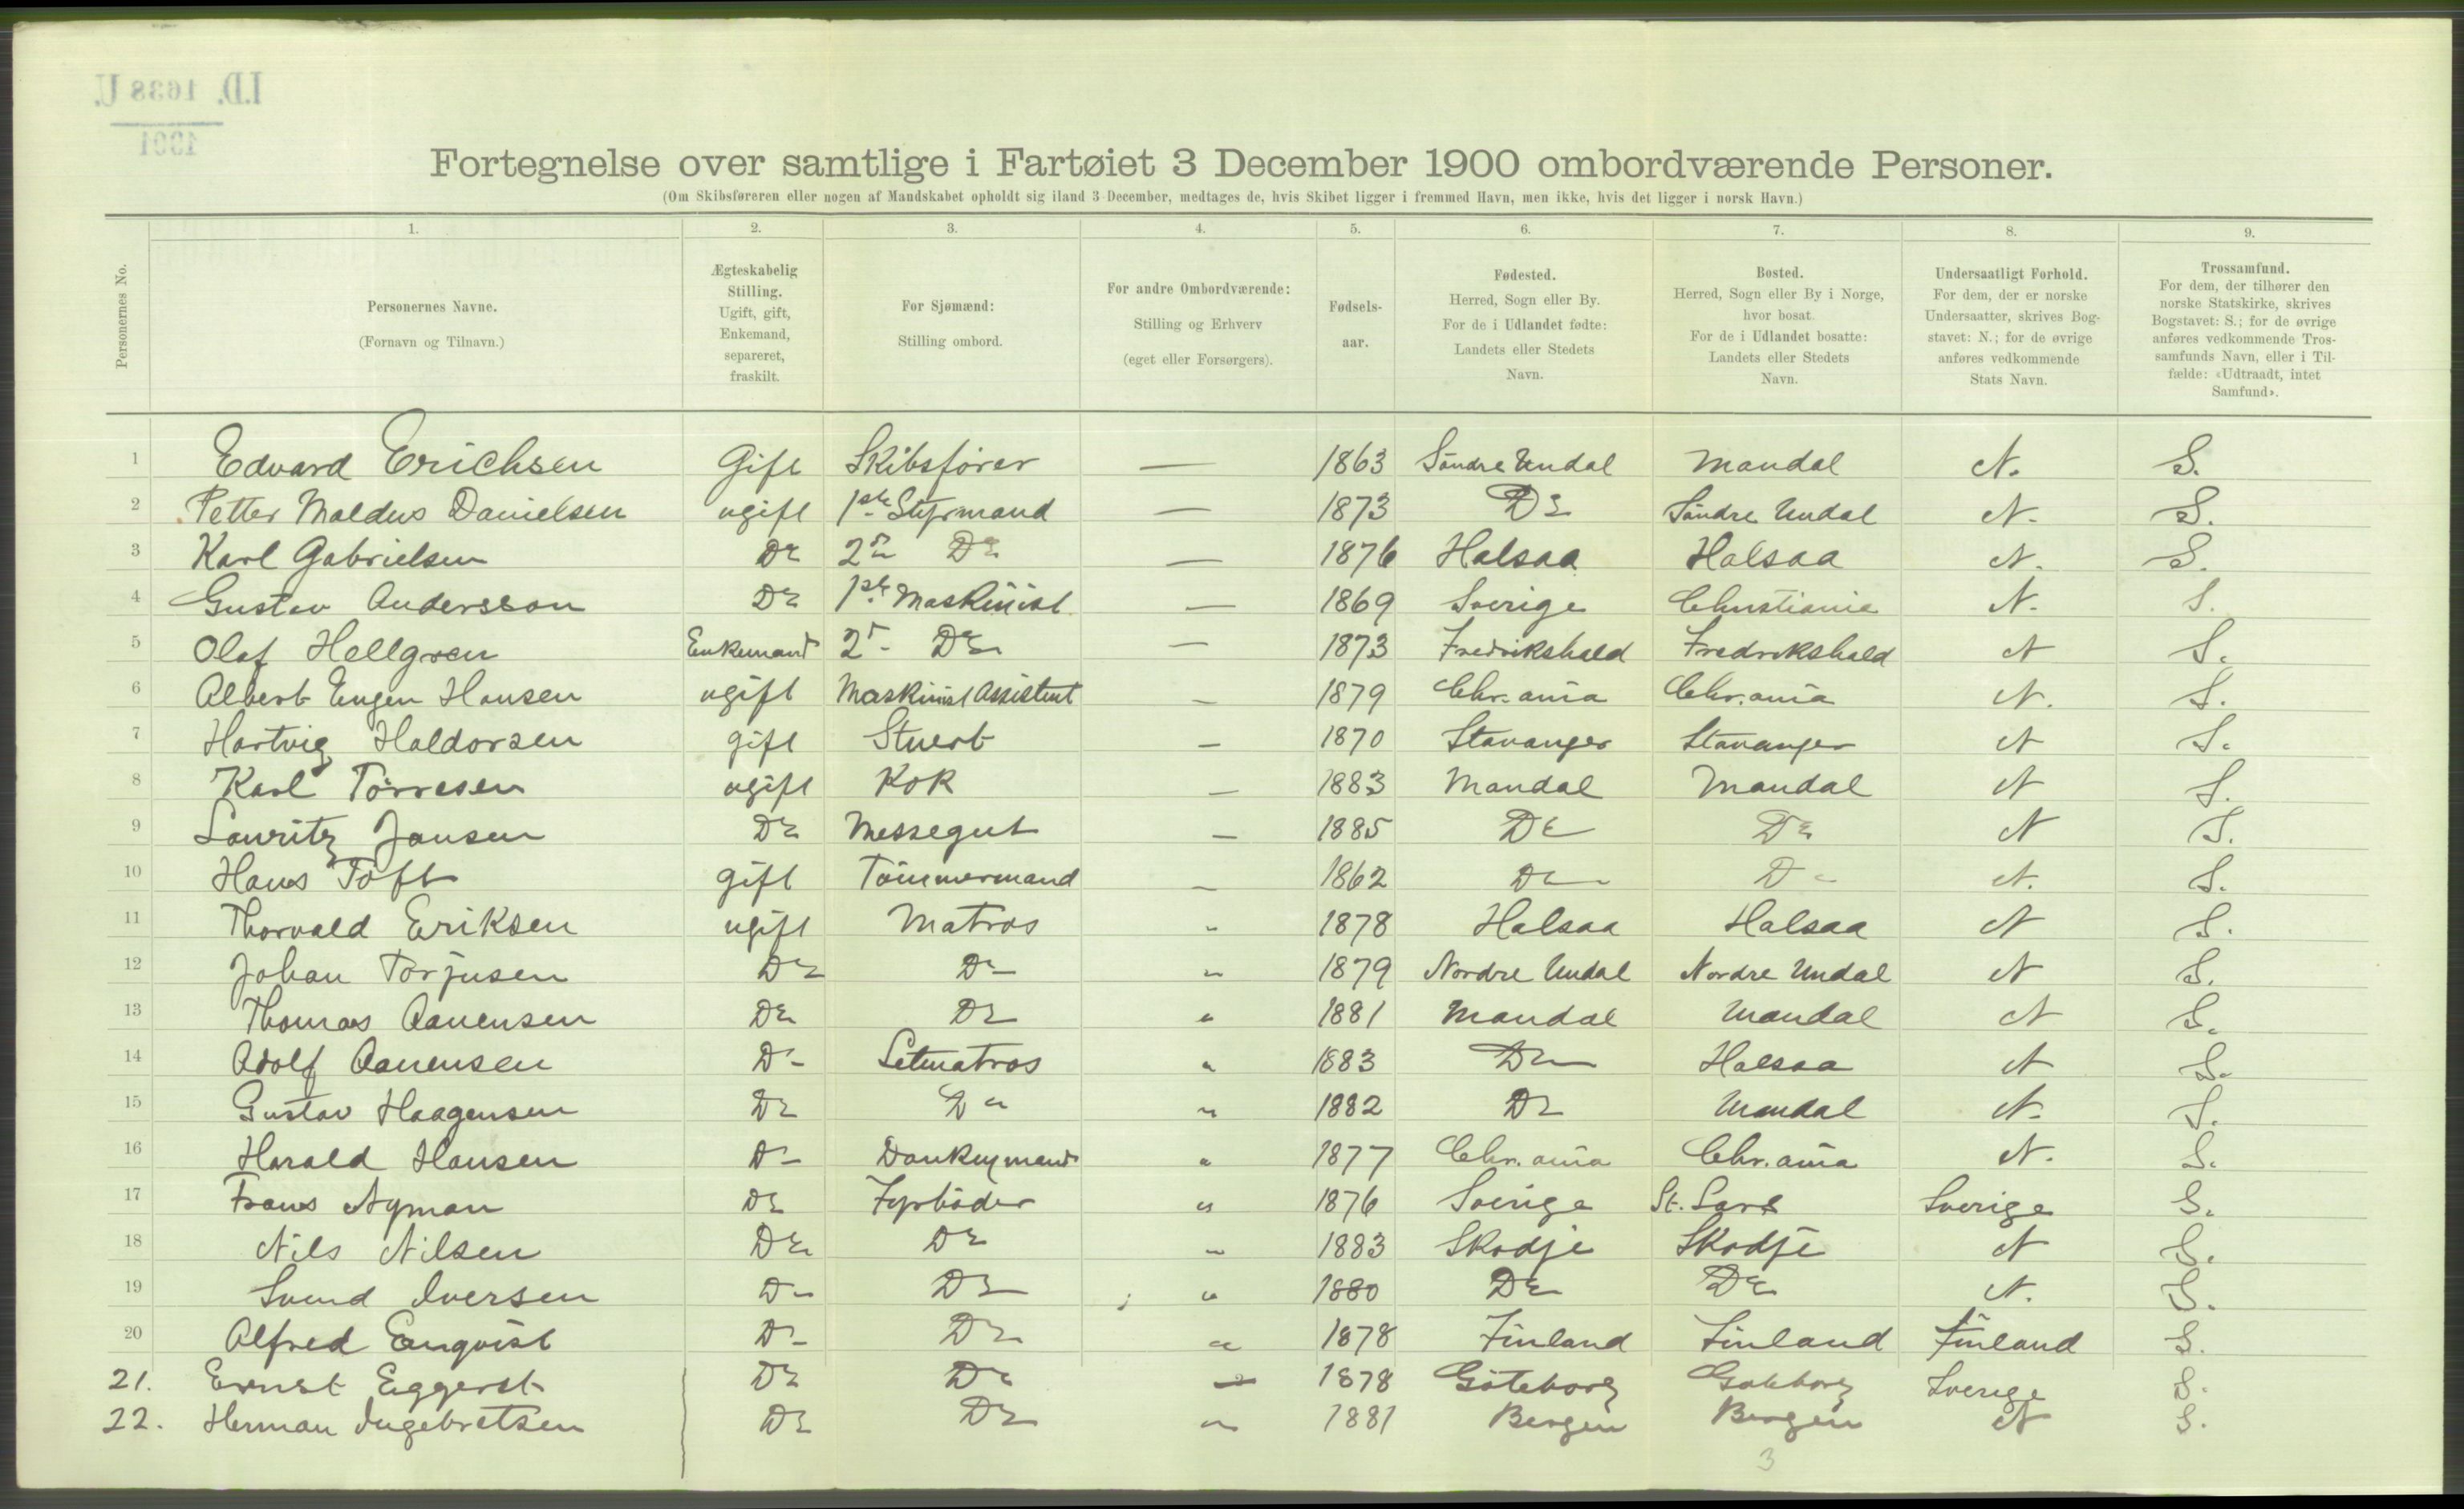 I.D. 1638 U.
1901
Fortegnelse over samtlige i Fartøiet 3 December 1900 ombordværende Personer.
(Om Skibsføreren eller nogen af Mandskabet opholdt sig iland 3 December, medtages de, hvis Skibet ligger i fremmed Havn, men ikke, hvis det ligger i norsk Havn.)
Personernes No.
1.
Personernes Navne.
(Fornavn og Tilnavn.)
2.
Ægteskabelig
Stilling.
Ugift, gift,
Enkemand,
separeret,
fraskilt.
3.
For Sjømænd:
Stilling ombord.
4.
For andre Ombordværende:
Stilling og Erhverv
(eget eller Forsørgers).
5.
Fødsels-
aar.
6.
Fødested.
Herred, Sogn eller By.
For de i Udlandet fødte:
Landets eller Stedets
Navn.
7.
Bosted.
Herred, Sogn eller By i Norge,
hvor bosat.
For de i Udlandet bosatte:
Landets eller Stedets
Navn.
8.
Undersaatligt Forhold.
For dem, der er norske
Undersaatter, skrives Bog-
stavet: N.; for de øvrige
anføres vedkommende
Stats Navn.
9.
Trossamfund.
For dem, der tilhører den
norske Statskirke, skrives
Bogstavet: S.; for de øvrige
anføres vedkommende Tros-
samfunds Navn, eller i Til-
fælde: «Udtraadt, intet
Samfund».
1 Edvard Erichsen Gift Skibsfører — 1863 Söndre Undal Mandal N. S.
2 Petter Maldus Danielsen ugift 1ste Styrmand — 1873 Do Söndre Undal N. S.
3 Karl Gabrielsen Do 2n Do — 1876 Halsaa Halsaa N. S.
4 Gustav Andersson Do 1ste Maskinist — 1869 Sverige Christiania N. S.
5 Olaf Hellgren Enkemand 2n Do — 1873 Fredrikshald Fredrikshald N S.
6 Albert Eugen Hansen ugift Maskinist Assistent — 1879 Chr.ania Chr.ania N. S.
7 Hartvig Haldorsen gift Stuert — 1870 Stavanger Stavanger N S.
8 Karl Törresen ugift Kok — 1883 Mandal Mandal N S.
9 Lauritz Jansen Do Messegut — 1885 Do Do N S.
10 Hans Toft gift Tömmermand — 1862 Do Do N. S.
11 Thorvald Eriksen ugift Matros " 1878 Halsaa Halsaa N S.
12 Johan Torjusen Do Do " 1879 Nordre Undal Nordre Undal N S.
13 Thomas Aanensen Do Do " 1881 Mandal Mandal N S.
14 Adolf Aanensen Do Letmatros " 1883 Do Halsaa N S.
15 Gustav Haagensen Do Do " 1882 Do Mandal N. S.
16 Harald Hansen Do Donkeymand " 1877 Chr.ania Chr.ania N. S.
17 Frans Nyman Do Fyrböder " 1876 Sverige St. Sverige S.
18 Nils Nilsen Do Do " 1883 Skodje Skodje N S.
19 Svend Iversen Do Do " 1880 Do Do N. S.
20 Alfred Enqvist Do Do " 1878 Finland Finland Finland S.
21. Ernst Eggerst Do Do " 1878 Göteborg Göteborg Sverige S.
22. Herman Ingebretsen Do Do " 1881 Bergen Bergen N S.
3